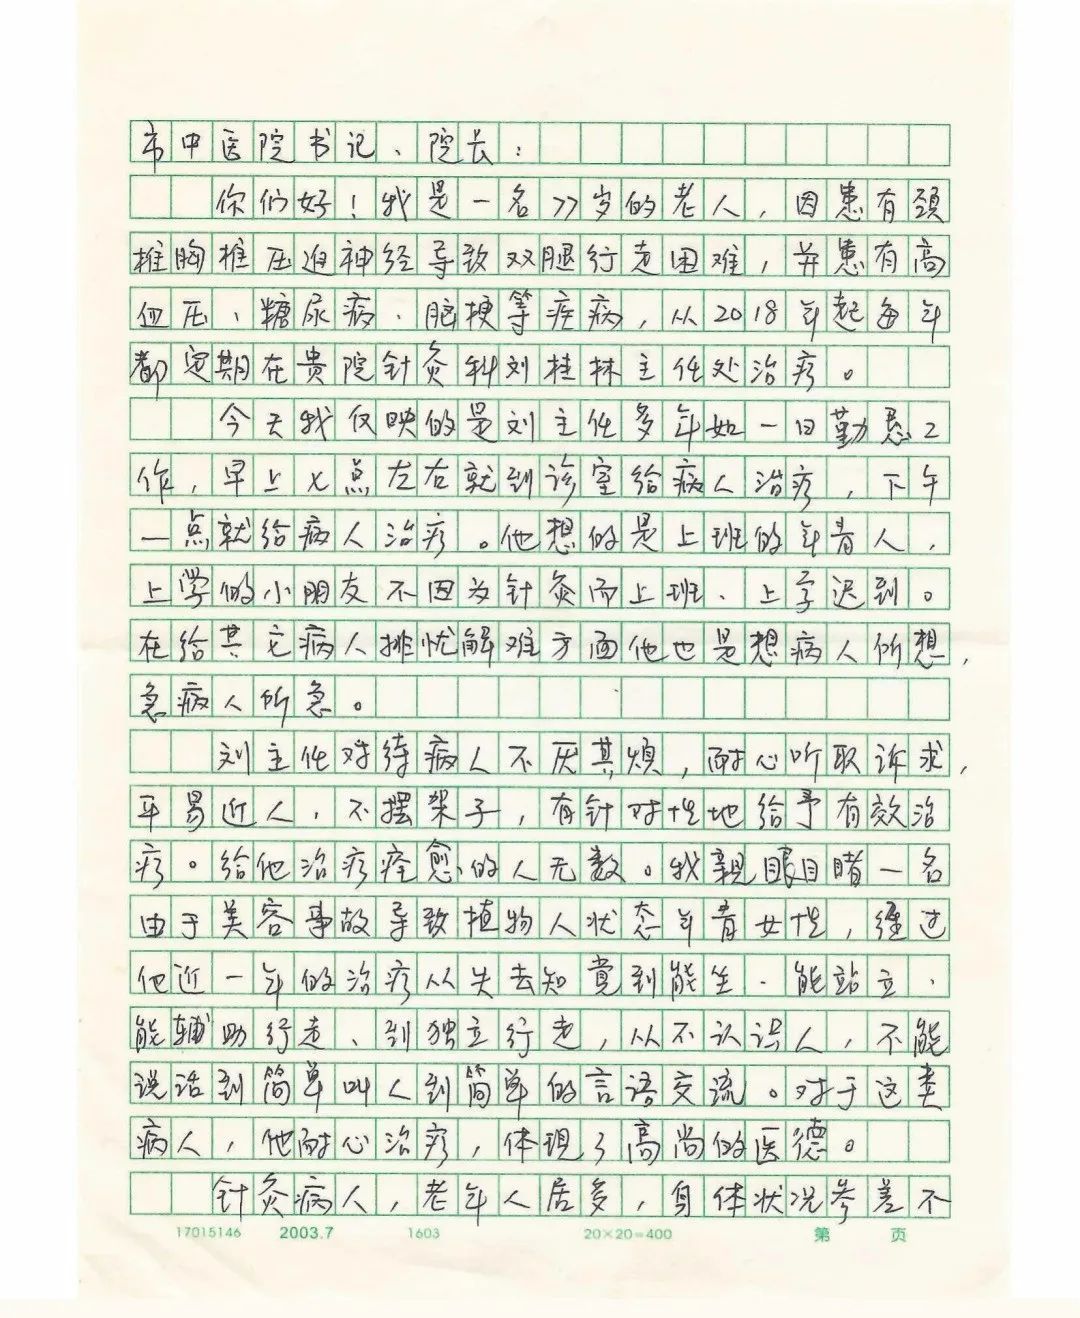 市中医院书记、院长：
你们好！我是一名77岁的老人，因患有颈
椎胸椎压迫神经导致双腿行走困难，并患有高
血压、糖尿病、脑梗等疾病，从2018年起每年
都定期在贵院针灸科刘桂林主任处治疗。
今天我仅映的是刘主任多年如一日勤恳工
作，早上七点左右就到诊室给病人治疗，下午
一点就给病人治疗。他想的是上班的年青人，
上学的小朋友不因为针灸而上班、上学迟到。
在给其它病人排忧解难方面他也是想病人所想，
急病人所急。
刘主任对待病人不厌其烦，耐心听取诉求，
平易近人，不摆架子，有针对性地给予有效治
疗。给他治疗痊愈的人无数。我親眼目睹一名
由于美容事故导致植物人状态年青女性，经过
他近一年的治疗从失去知覚到能坐、能站立、
能辅助行走、到独立行走，从不认识人，不能
说话到简单叫人到简单的言语交流。对于这类
病人，他耐心治疗，体现了高尚的医德。
针灸病人，老年人居多，身体状况参差不
17015146 2003.7 1603 20×20=400 第 页